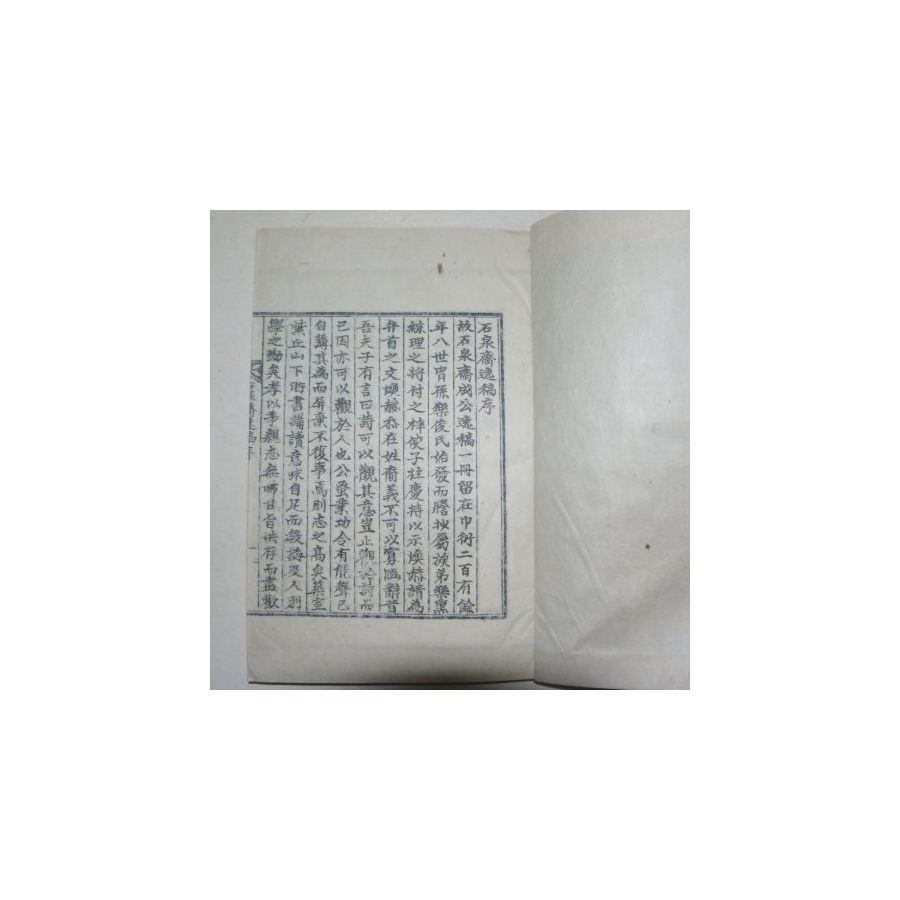 石泉齋逸稿序
故石泉齋成公逸稿一冊留在巾衍二百有餘
年八世冑孫樂俊氏始發而謄抄屬族弟樂熏
綜理之將付之梓使子柱慶持以示煥赫請爲
弁首之文煥赫忝在姓裔義不可以實陋辭昔
吾夫子有言曰詩可以觀其意豈止觀於詩而
已因亦可以觀於人也公蚤業功令有能聲已
自薄其爲而屛棄不復事焉則志之高矣築室
紫丘山下貯書誦讀意味自足而授
學之勤矣孝以事親志無